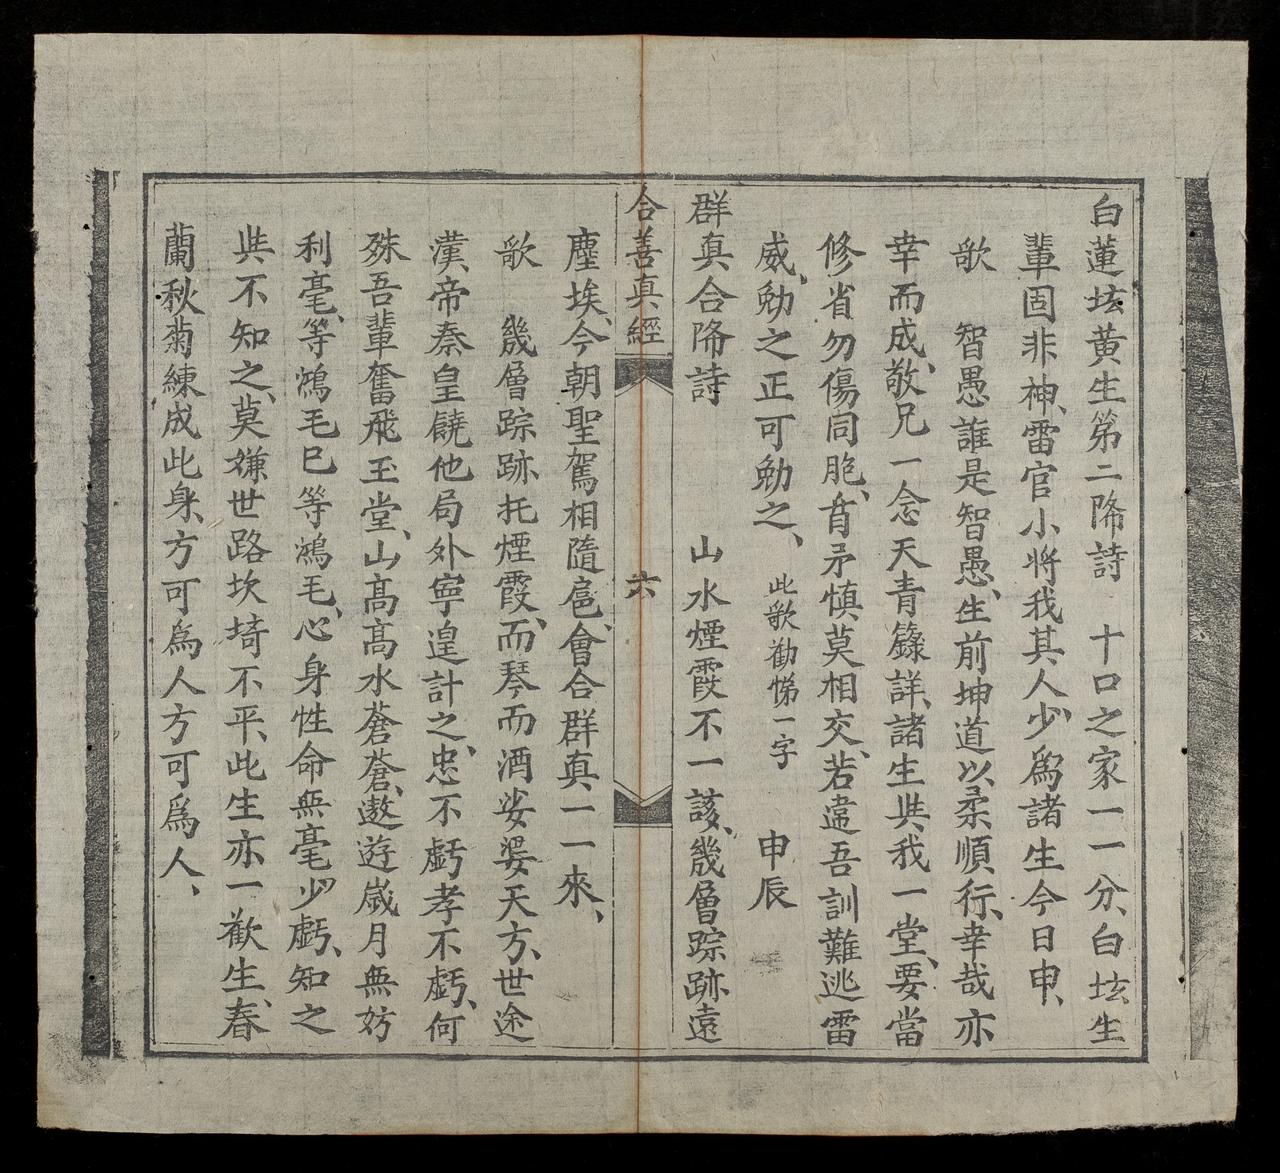 白蓮坛黄生第二降詩　十口之家一一分、白坛生
輩固非神、雷官小將我其人、少為諸生今日申、
歌　智愚誰是智愚、生前坤道以柔順行、幸哉亦
幸而成、敬兄一念天青籙詳、諸生與我一堂、要當
修省勿傷同胞、音矛慎莫相交、若違吾訓難逃雷
威、勉之正可勉之、　此歌勸悌一字　申辰
群真合降詩　山水煙霞不一該、幾層踪跡遠
合善真經　六
塵埃、今朝聖駕相隨扈、會合群真一一來、
歌　幾層踪跡托煙霞、而琴而酒娑婆天方、世途
漢帝秦皇饒他局外寧遑計之、忠不虧孝不虧、何
殊吾輩奮飛玉堂、山高高水蒼蒼、遨遊歲月無妨
利毫、等鴻毛已等鴻毛、心身性命無毫少虧、知之
與不知之、莫嫌世路坎埼不平、此生亦一歡生、春
蘭秋菊練成此身、方可為人方可為人、